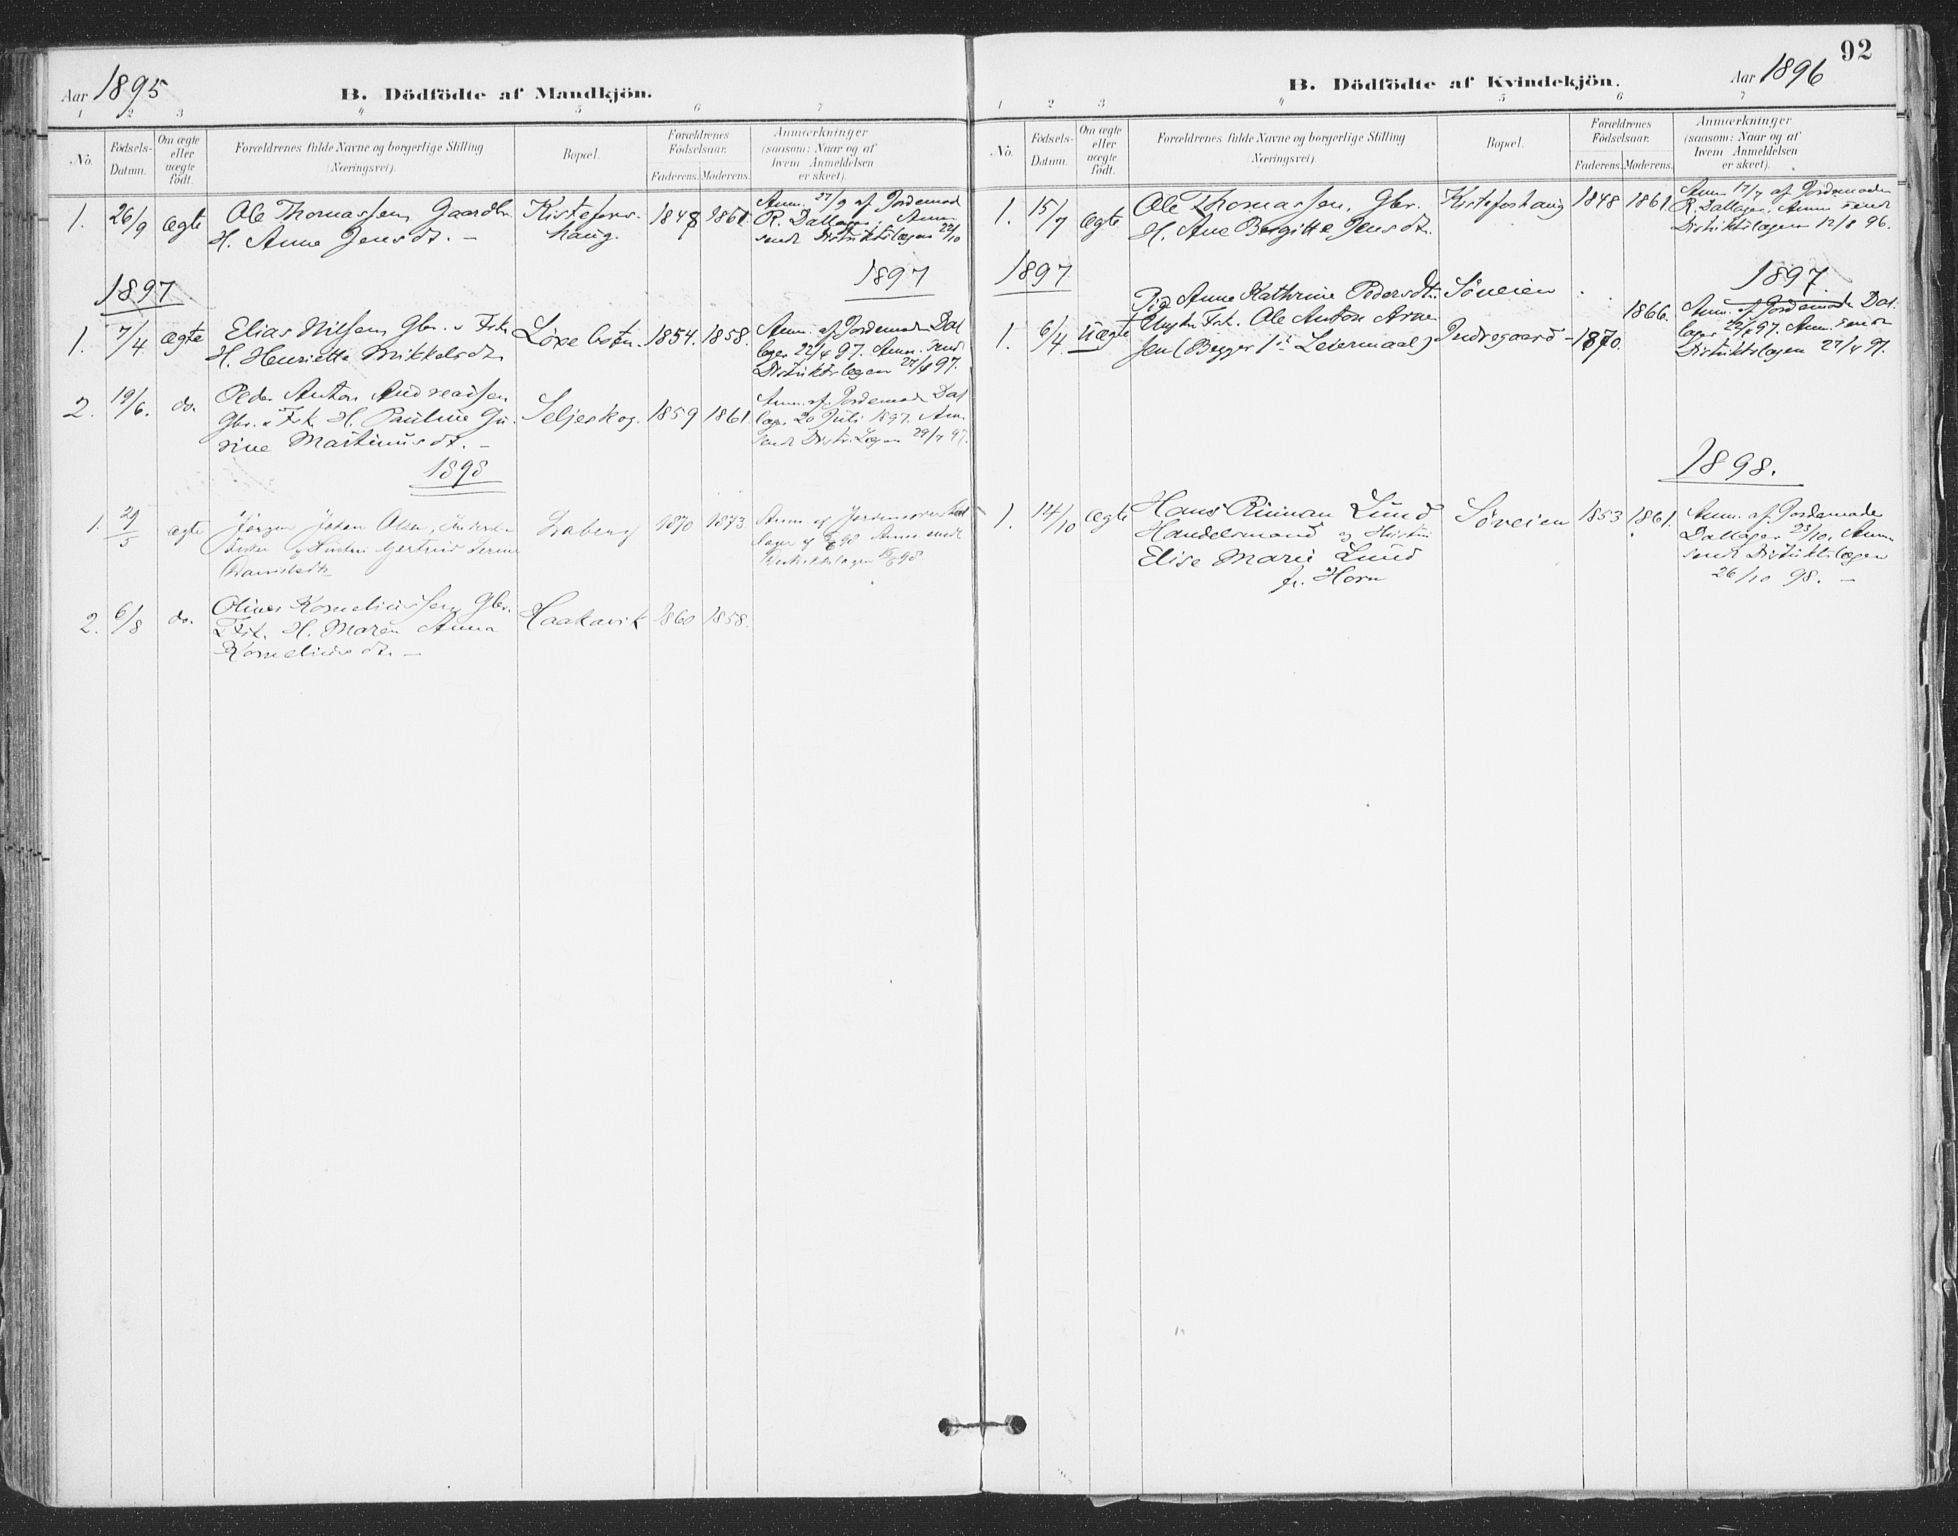 Aar 1895
B. Dödfödte af Mandkjön.
1 2 3 4 5 6 7
No.
Födsels-
Datum.
Om ægte
eller
uægte
födt.
Forældrenes fulde Navne og borgerlige Stilling
(Næringsvei).
Bopæl.
Forældrenes
Födselsaar.
Faderens. Moderens.
Anmærkninger
(saasom: Naar og af
hvem Anmeldelsen
er skeet).
1. 26/9 ægte
Ole Thomassen, Gaardbr.
H. Anne Jensdt. –
Kistefos-
haug.
1848 1861
Anm. 27/9 af Jordemod
R. Dallager. Anm.
sendt Distriktslægen 22/10
1897
1897
1. 7/4 ægte
Elias Nilsen, Gbr. & Fsk.
H. Henriette Mikkelsdt.
Löxebotn.
1854. 1858.
Anm. af Jordemoder Dal
lager 22/4 97. Anm. sendt
Distriktslægen 27/4 97.
2. 19/6. do.
Peder Anton Andreassen
Gbr. & Fsk. H. Pauline Gu-
rine Martinusdt. –
Seljeskog.
1859 1861.
Anm. af Jordemoder Dal
lager 20 Juli 1897. Anm.
sendt Distr. Lægen 29/7 97.
1898
1. 29/5 ægte
Jörgen Johan Olsen,
Fisker og Hustru Gjertrud
Danielsdt.
Laberg
1870 1873
Anm. af Jordemoder Dal
lager 98 Anm. sendt
Distriktslægen 98
2. 6/8 do.
Oliver Korneliussen, Gbr.
Fsk. H. Maren Anna
Korneliusdt. –
Haakavik
1860 1858.
92
B. Dödfödte af Kvindekjön.
Aar 1896
1 2 3 4 5 6 7
No.
Födsels-
Datum.
Om ægte
eller
uægte
födt.
Forældrenes fulde Navne og borgerlige Stilling
(Næringsvei).
Bopæl.
Forældrenes
Födselsaar.
Faderens. Moderens.
Anmærkninger
(saasom: Naar og af
hvem Anmeldelsen
er skeet).
1. 15/7 Ægte
Ole Thomassen, Gbr.
H. Ane Bergitte Jensdt.
Kistefoshaug
1848 1861
Anm. 17/7 af Jordemoder
R. Dallager. Anm sendt
Distriktslægen 12/8 96.
1897
1897.
1. 6/4 Uægte
Pige Anne Kathrine Pedersdt.
Ungkr. Fsk. Ole Anton Arne
sen (Begges 1ste Leiermaal)
Söveien
Indregaard
1870. 1866.
Anm. af Jordemoder Dal
lager 22/4 97. Anm. sendt
Distriktslægen 27/4 97.
1898.
1. 14/10 Ægte
Hans Rinnan Lund
Handelsmand og Hustru
Elise Marie Lund
f. Horn
Söveien
1853 1861.
Anm. af Jordemoder
Dallager 23/10. Anm.
sendt Distriktslægen
26/10 98. –